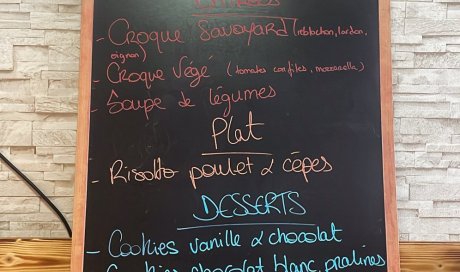 - Croque Savoyard (reblochon, lardon,
oignon)
- Croque Végé (tomates confites, mozzarella)
- Soupe de légumes
Plat
- Risotto poulet & cèpes
DESSERTS
- Cookies vanille & chocolat
- Cookies chocolat blanc, pralines